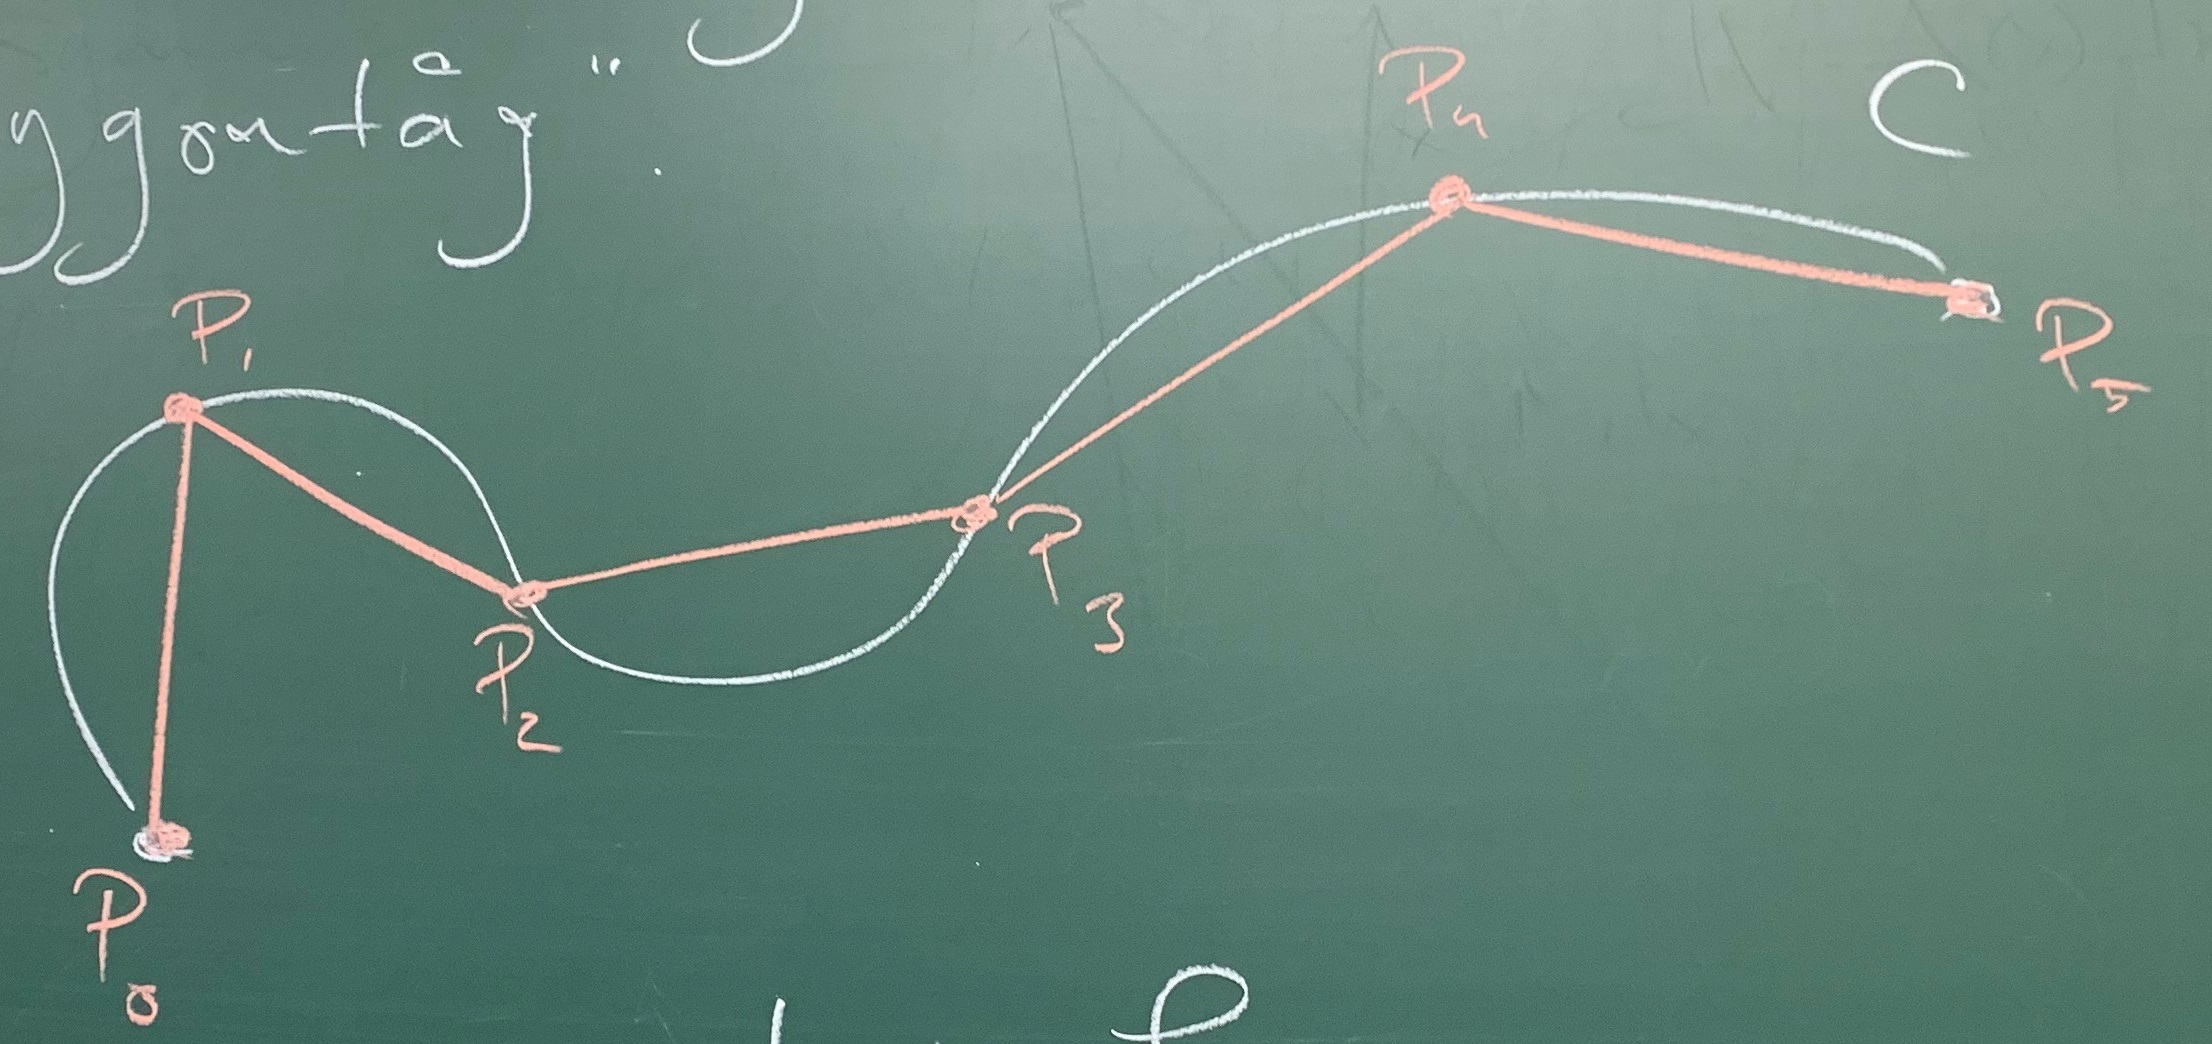 yggontåg"
P₄
C
P₁
P₅
P₃
P₂
P₀